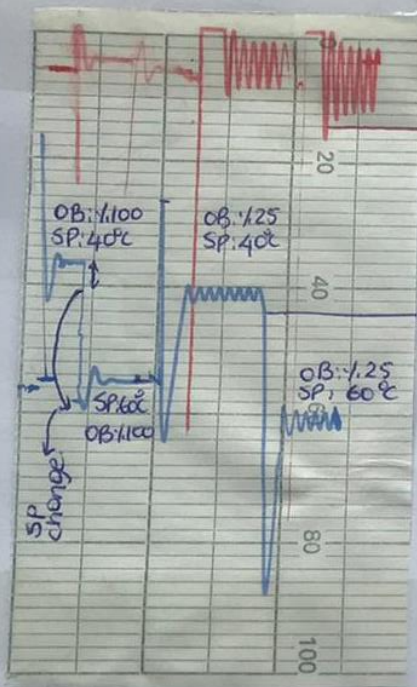 0
20
OB:%100
SP:40°C
OB:%25
SP:40°C
40
OB:%25
SP: 60°C
SP:60°C
OB:%100
SP
change
80
100